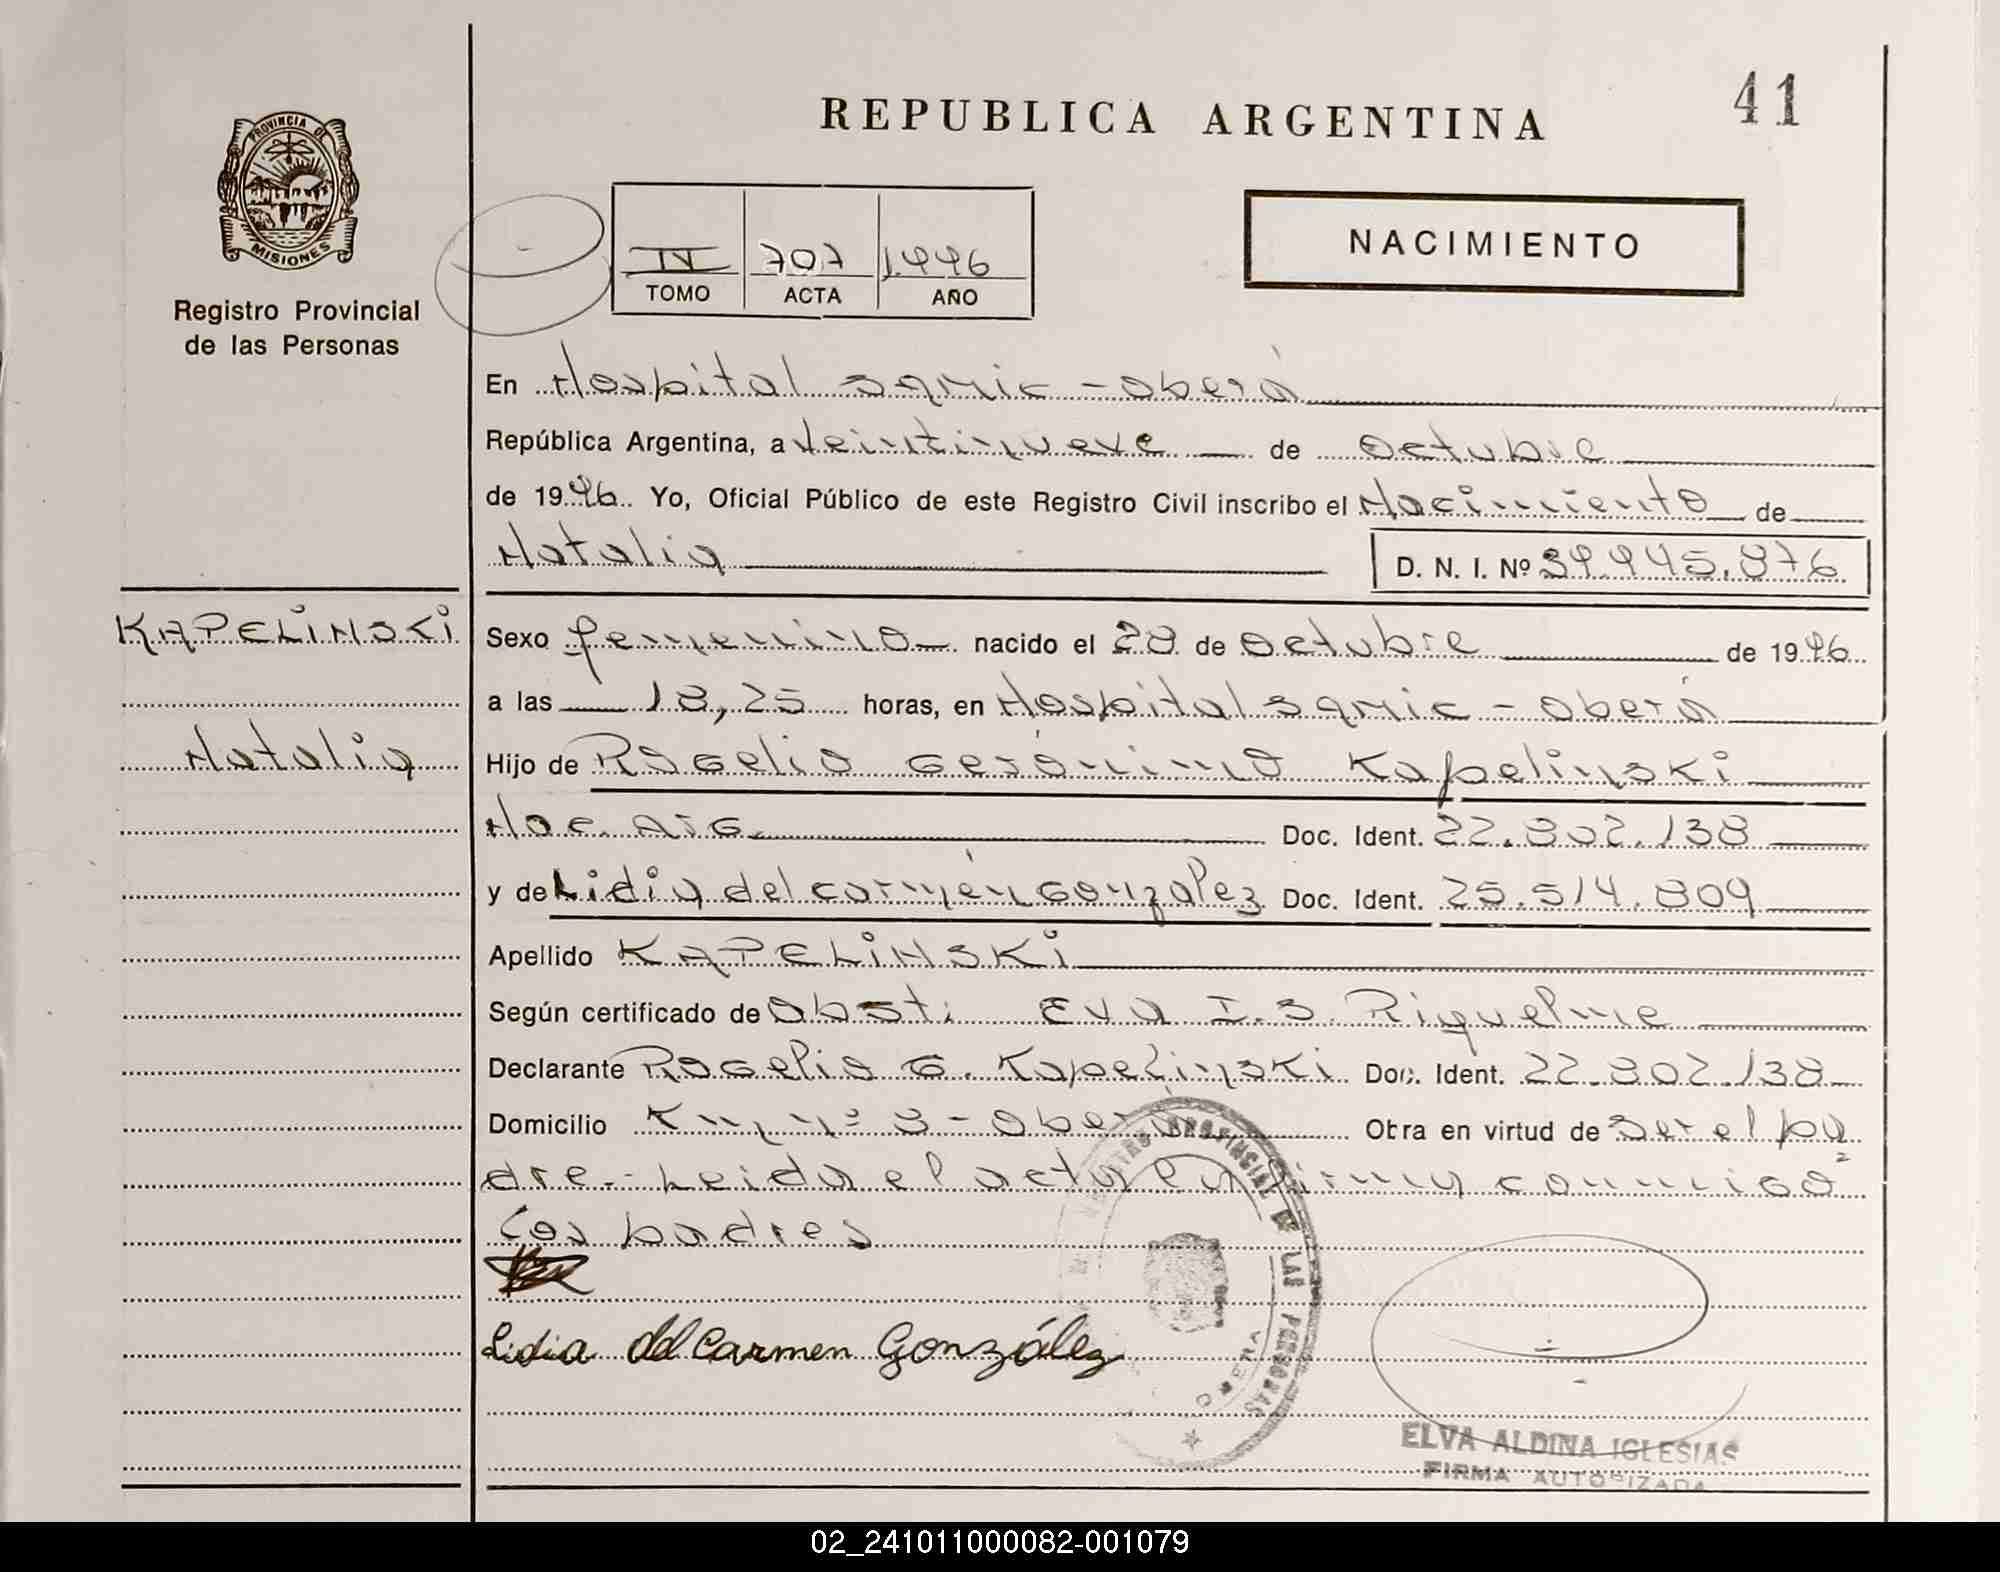 41
REPUBLICA ARGENTINA
PROVINCIA DE
MISIONES
Registro Provincial
de las Personas
IV 707 1.996
TOMO ACTA AÑO
NACIMIENTO
En Hospital Samic - Oberá
República Argentina, a Veintinueve de Octubre
de 1996 Yo, Oficial Público de este Registro Civil inscribo el Nacimiento de
Natalia D. N. I. Nº 39.945.876
KAPELINSKI
Natalia
Sexo femenino nacido el 28 de Octubre de 1996
a las 18,25 horas, en Hospital Samic - Oberá
Hijo de Rogelio Gerónimo Kapelinski
Nac. Arg. Doc. Ident. 22.802.138
y de Lidia del Carmén Gonzalez Doc. Ident. 25.514.809
Apellido KAPELINSKI
Según certificado de Obsti Eva I. S. Riquelme
Declarante Rogelio G. Kapelinski Doc. Ident. 22.802.138
Domicilio Km nº 8 - Oberá Obra en virtud de ser el pa
dre.- Leida el acta la firman conmigo
los padres
Lidia del Carmen González
REGISTRO PROVINCIAL DE LAS PERSONAS
OBERA
ELVA ALDINA IGLESIAS
FIRMA AUTORIZADA
02_241011000082-001079